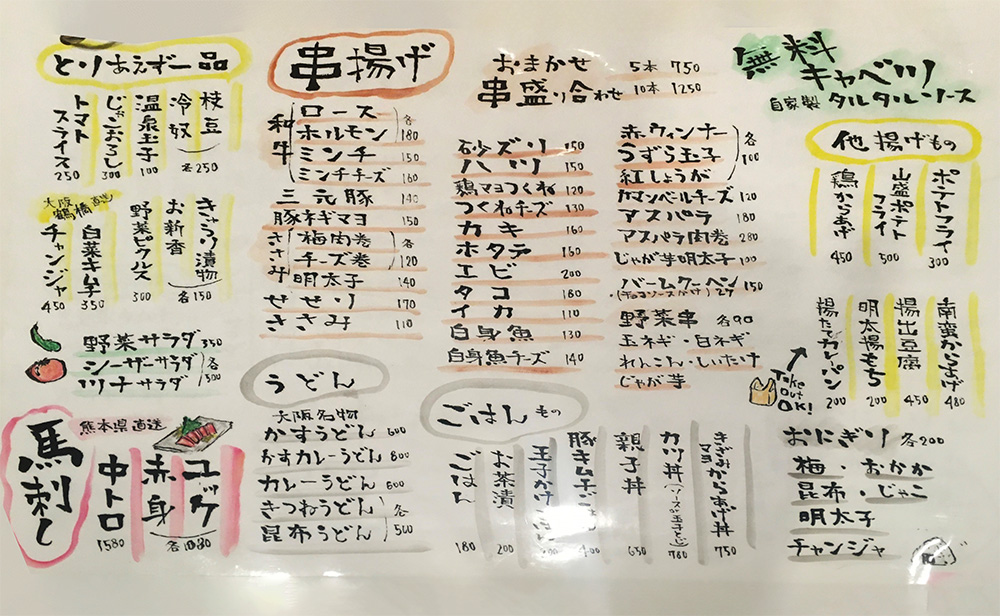 とりあえず一品
枝豆
冷奴
各250
温泉玉子
100
じゃこおろし
300
トマトスライス
250
大阪鶴橋直送
きゅうり漬物
お新香
各150
野菜ピクルス
300
白菜キムチ
350
チャンジャ
450
野菜サラダ 350
シーザーサラダ
ツナサラダ
各500
馬刺し
熊本県直送
ユッケ
赤身
中トロ
1580
串揚げ
和牛
ロース
ホルモン
各180
ミンチ 150
ミンチチーズ 160
三元豚 140
豚ネギマヨ 150
ささみ
梅肉巻
チーズ巻
各120
明太子 140
せせり 170
ささみ 110
おまかせ
串盛り合わせ
5本 750
10本 1250
砂ズリ 150
ハツ 150
鶏マヨつくね 120
つくねチーズ 130
カキ 160
ホタテ 160
エビ 200
タコ 180
イカ 110
白身魚 130
白身魚チーズ 140
赤ウィンナー
うずら玉子
紅しょうが
各100
カマンベールチーズ 120
アスパラ 180
アスパラ肉巻 280
じゃが芋明太子 100
バームクーヘン 150
野菜串 各90
玉ネギ・白ネギ
れんこん・しいたけ
じゃが芋
うどん
大阪名物
かすうどん 600
かすカレーうどん 800
カレーうどん 600
きつねうどん
昆布うどん
各500
ごはんもの
きざみからあげ丼
マヨ
750
カツ丼
780
親子丼
650
豚キムチごはん
400
玉子かけごはん
お茶漬
200
ごはん
180
無料
キャベツ
自家製 タルタルソース
他揚げもの
ポテトフライ
300
山盛ポテトフライ
500
鶏からあげ
450
南蛮からあげ
480
揚出豆腐
450
明太揚もち
200
揚たてカレーパン
200
Take Out OK!
おにぎり 各200
梅・おかか
昆布・じゃこ
明太子
チャンジャ